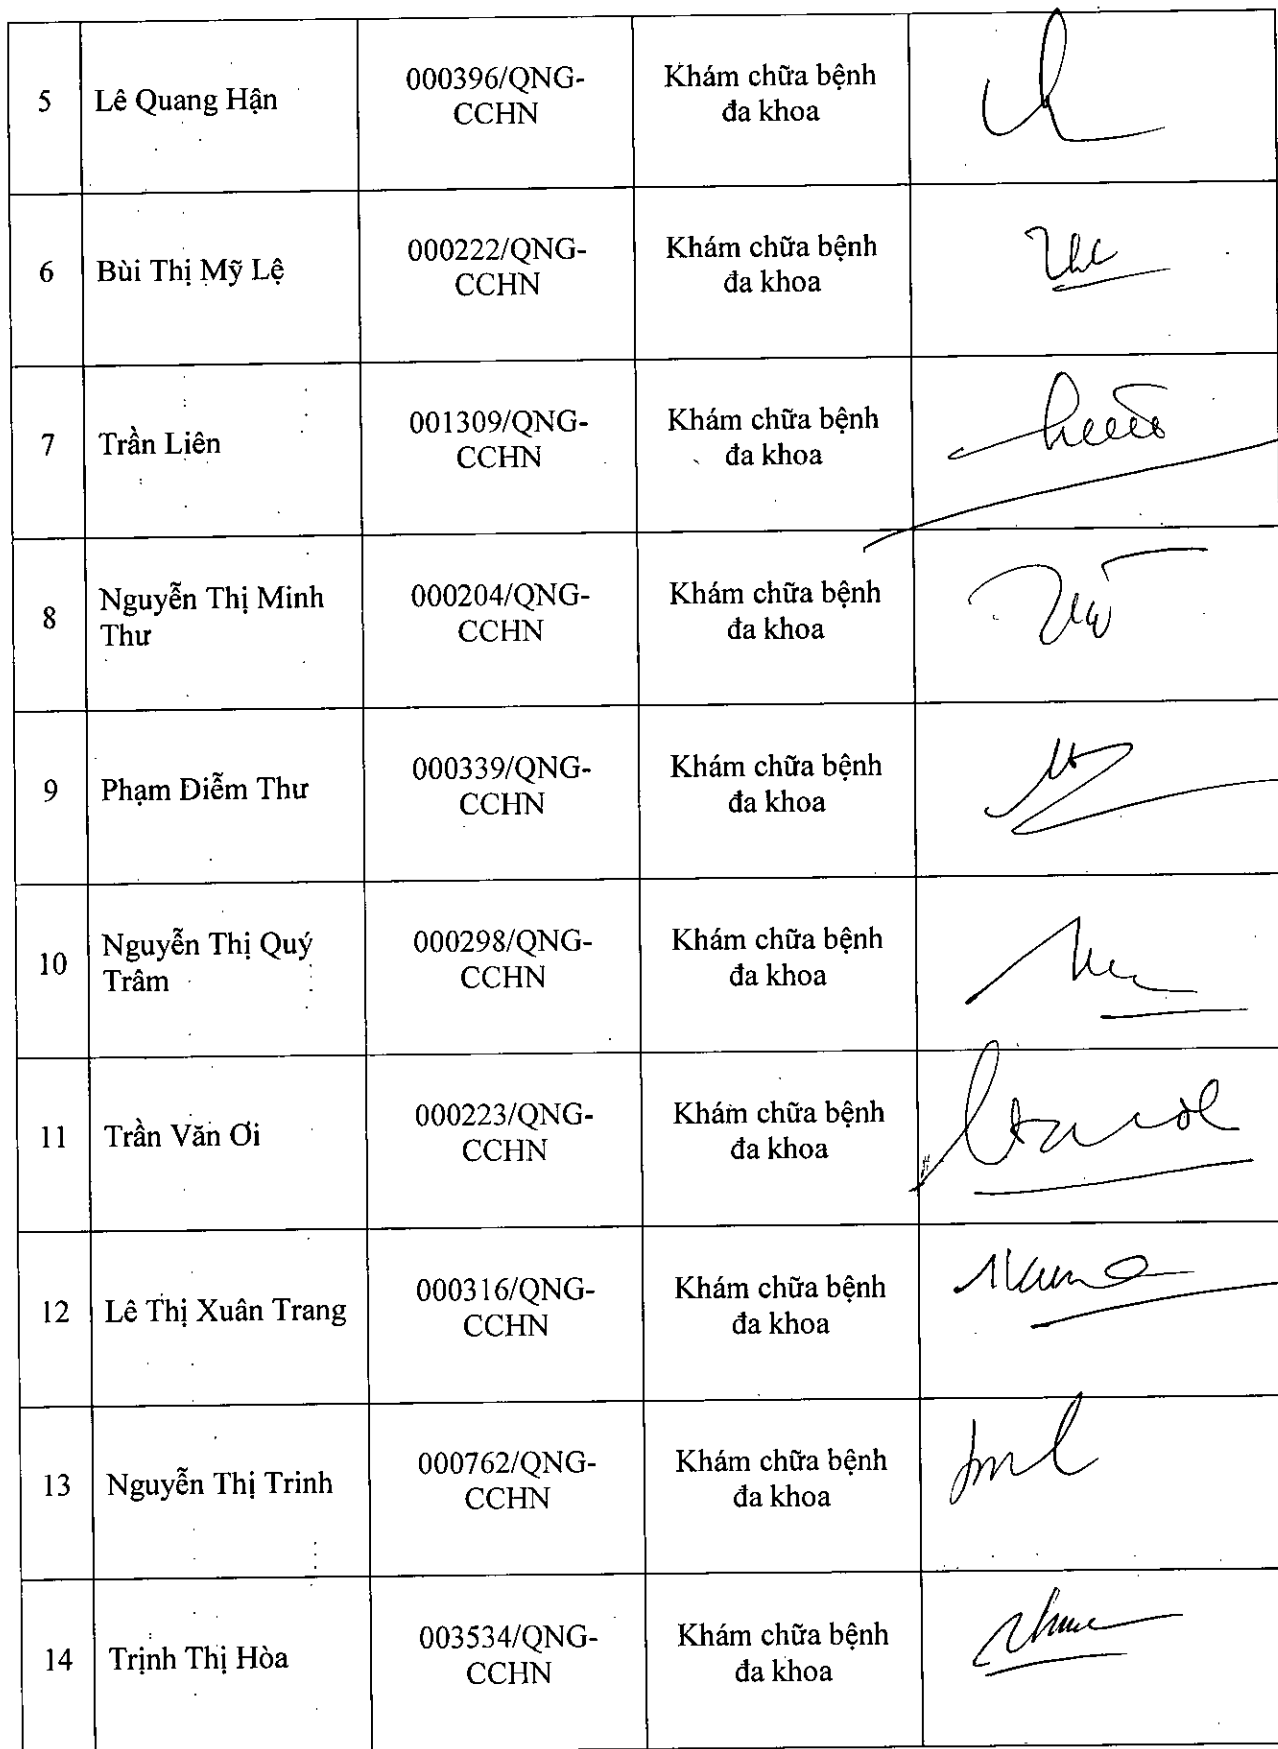 5 Lê Quang Hận 000396/QNG-CCHN Khám chữa bệnh đa khoa
6 Bùi Thị Mỹ Lệ 000222/QNG-CCHN Khám chữa bệnh đa khoa
7 Trần Liên 001309/QNG-CCHN Khám chữa bệnh đa khoa
8 Nguyễn Thị Minh Thư 000204/QNG-CCHN Khám chữa bệnh đa khoa
9 Phạm Diễm Thư 000339/QNG-CCHN Khám chữa bệnh đa khoa
10 Nguyễn Thị Quý Trâm 000298/QNG-CCHN Khám chữa bệnh đa khoa
11 Trần Văn Ơi 000223/QNG-CCHN Khám chữa bệnh đa khoa
12 Lê Thị Xuân Trang 000316/QNG-CCHN Khám chữa bệnh đa khoa
13 Nguyễn Thị Trinh 000762/QNG-CCHN Khám chữa bệnh đa khoa
14 Trịnh Thị Hòa 003534/QNG-CCHN Khám chữa bệnh đa khoa